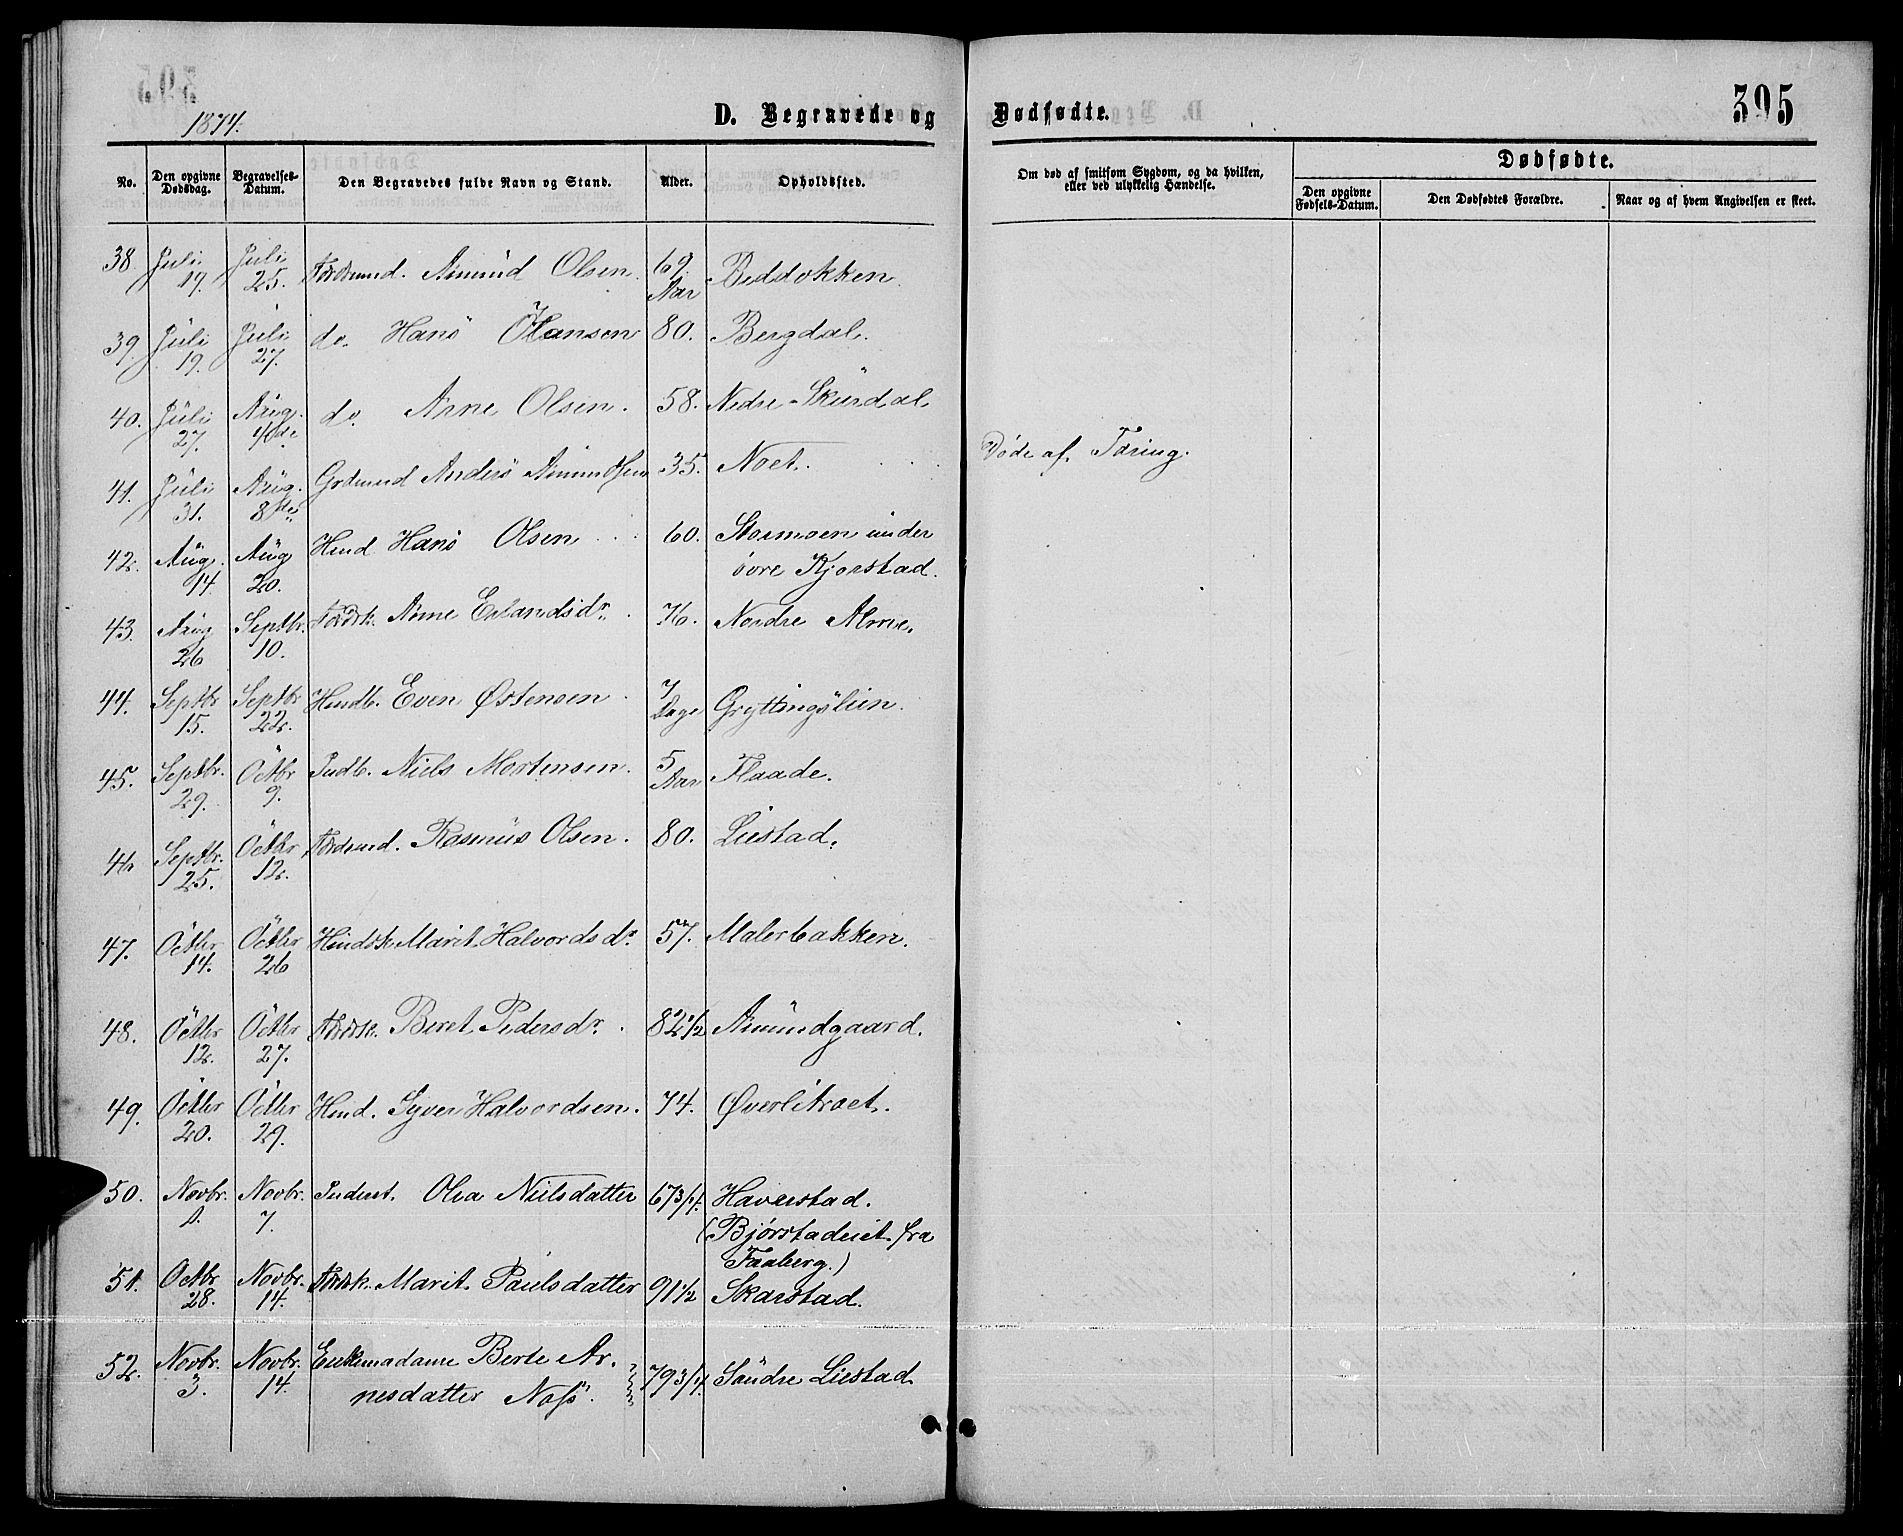 1874.
D. Begravede og Dødfødte.
395
No.
Den opgivne Dødsdag.
Begravelses-Datum.
Den Begravedes fulde Navn og Stand.
Alder.
Opholdssted.
Om død af smitsom Sygdom, og da hvilken,
eller ved ulykkelig Hændelse.
Dødfødte.
Den opgivne Fødsels-Datum.
Den Dødfødtes Forældre.
Naar og af hvem Angivelsen er skeet.
38 Juli 19. Juli 25. Amund Olsen. 69 Aar
39. Juli 19. Juli 27. do. Hans Hansen 80. Bergdal.
40. Juli 27. Aug. 4de do. Arne Olsen. 58. Nedre Skurdal
41. Juli 31. Aug. 8de Grdmand Anders Amundsen 35. Noet. Døde af Tæring.
42. Aug. 14. Aug 20. Hmd Hans Olsen 60. Stormoen under
øvre Kjorstad.
43. Aug 26 Septbr. 10. Føderk. Anne Erlandsdr. 76. Nordre Alme.
44. Septbr 15. Septbr 22. Hmdb. Even Østensen 7 Dage Gryttingslien.
45. Septbr. 29. Octbr 9. Indb. Niels Mortensen. 5 Aar Flaade.
46 Septbr. 25. Octbr 12. Rasmus Olsen. 80. Liestad.
47. Octbr 14. Octbr 26 Hmdsk. Marit Halvordsdr. 57. Malerbakken.
48. Octbr 12. Octbr 27. Føderk. Beret Pedersdr. 82 1/2 Amundgaard.
49. Octbr 20. Octbr 29. Hmd. Syver Halvordsen. 74. Øverlitroet.
50. Novbr. 1. Novbr. 7. Inderst. Olea Nielsdatter 67 3/4. Haverstad.
(Bjørstadeiet fra
Faaberg.)
51. Octbr 28. Novbr. 14. Føderk. Marit Paulsdatter 91 1/2 Skarstad.
52. Novbr. 3. Novbr. 14. Enkemadame Berte Ar-
nesdatter Noss. 79 3/4. Søndre Liestad